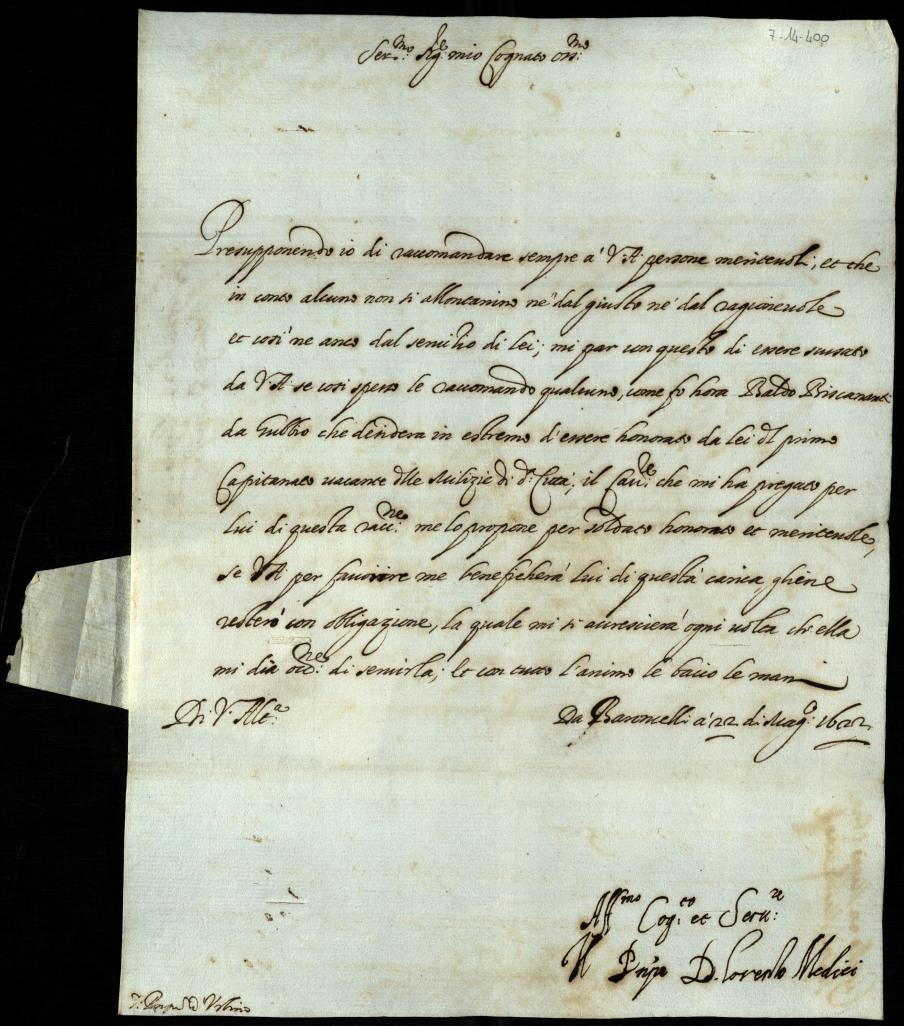 7-14-400
Ser.mo Sig.re mio Cognato oss.mo
Presupponendo io di raccomandare sempre à V. A. persone meriteuoli, et che
in conto alcuno non si allontanino ne' dal giusto ne' dal ragioneuole
et cosi' ne anco dal seruitio di lei; mi par con questo di essere scusato
da V. A. se cosi spesso le raccomando qualcuno, come fo hora Baldo
da Gubbio che desidera in estremo d'essere honorato da lei del primo
Capitanato uacante delle Milizie di d.a Città; il Cau.re che mi ha pregato per
lui di questa racc.ne me lo propone per soldato honorato et meriteuole,
se V. A. per fauorire me beneficherà lui di questa carica, gliene
resterò con obligazione, la quale mi si accrescierà ogni uolta ch'ella
mi dia occ.ne di seruirla; et con tutto l'animo le bacio le mani
Di V. Alt.a
Da Baroncelli à 22 di Mag.o 1622
Aff.mo Cog.to et Seru.re
Il Prīpe D. Lorenzo Medici
S.r Duca d'Urbino